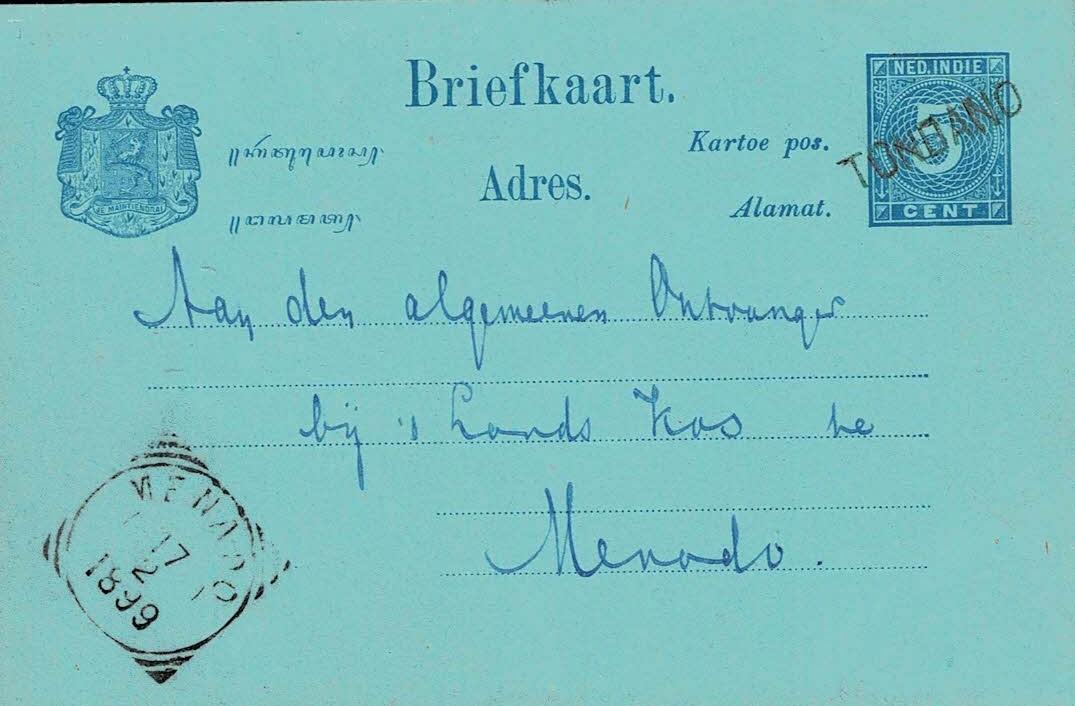 Briefkaart.
NED. INDIE
Kartoe pos.
TONDANO
Adres.
Alamat.
JE MAINTIENDRAI
CENT
Aan den algemeenen Ontvanger
bij 's Lands Kas te
Menado.
MENADO
17
2
1899